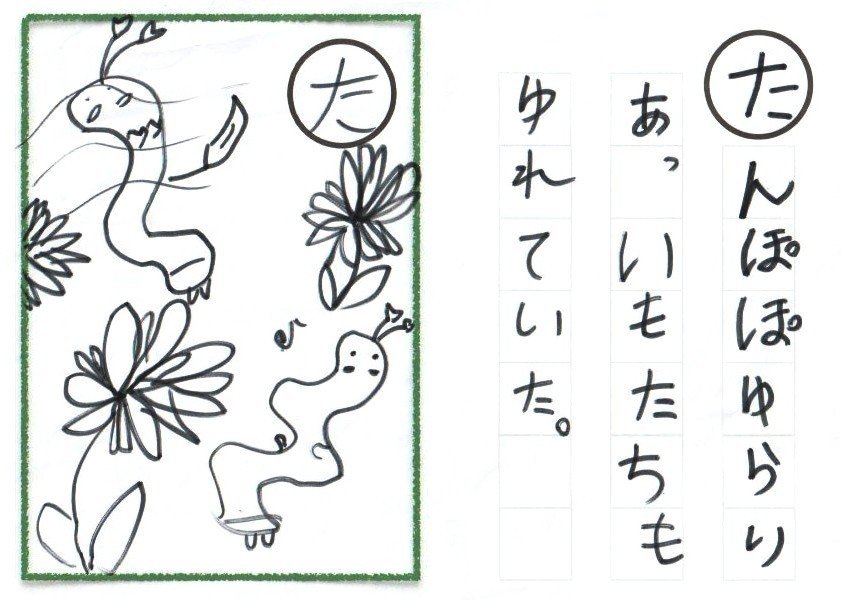 た
たんぽぽゆらり
あっいもたちも
ゆれていた。